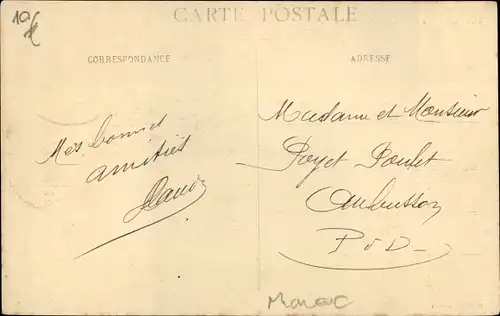 10€
CARTE POSTALE
CORRESPONDANCE
ADRESSE
Mes bonnes
amitiés
Madame et Monsieur
Poyet Poulet
Aubusson
P d D
Maroc